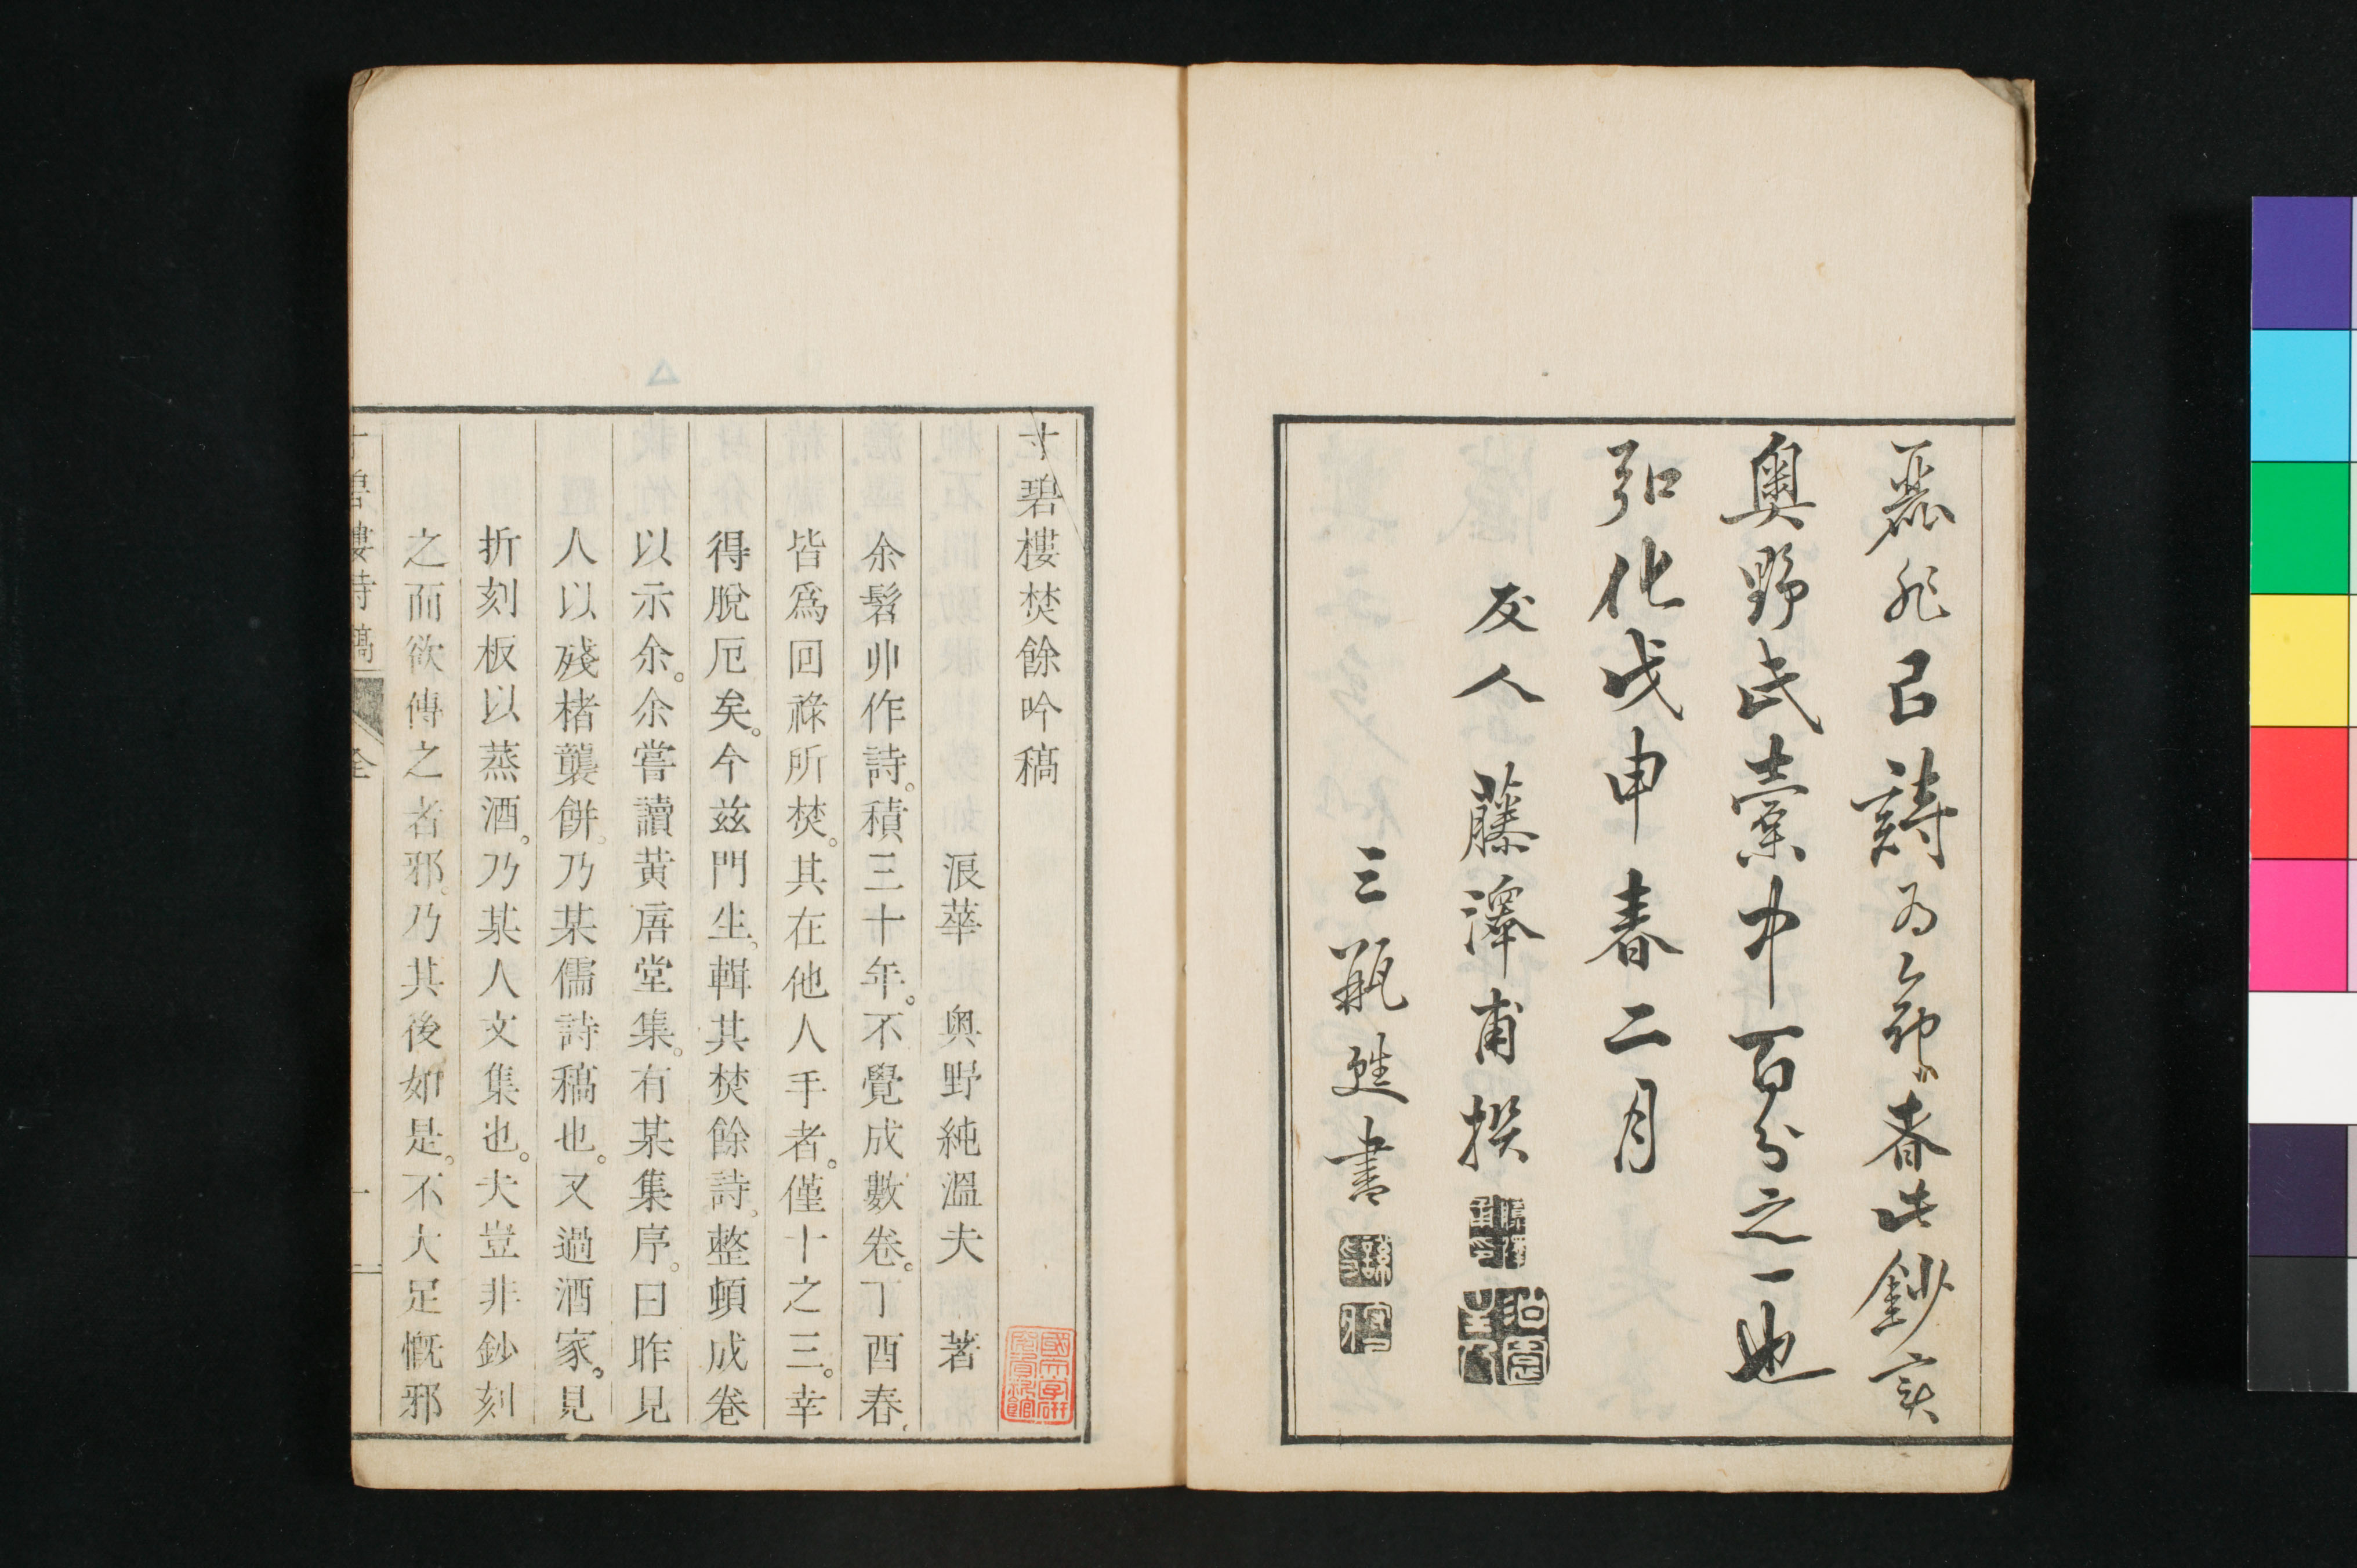 奧野氏稾中百分之一也
弘化戊申春二月
友人 藤澤甫撰
三瓶 書
寸碧樓焚餘吟稿
浪華 奥野純溫夫 著
余髫丱作詩。積三十年。不覺成數卷。丁酉春、
皆爲回祿所焚。其在他人手者。僅十之三。幸
得脫厄矣。今兹門生、輯其焚餘詩。整頓成卷
以示余。余嘗讀黃唐堂集。有某集序。曰昨見
人以殘楮襲餅。乃某儒詩稿也。又過酒家。見
折刻板以蒸酒。乃某人文集也。夫豈非鈔刻
之而欲傳之者邪。乃其後如是。不大足慨邪
寸碧樓詩稿 全 一